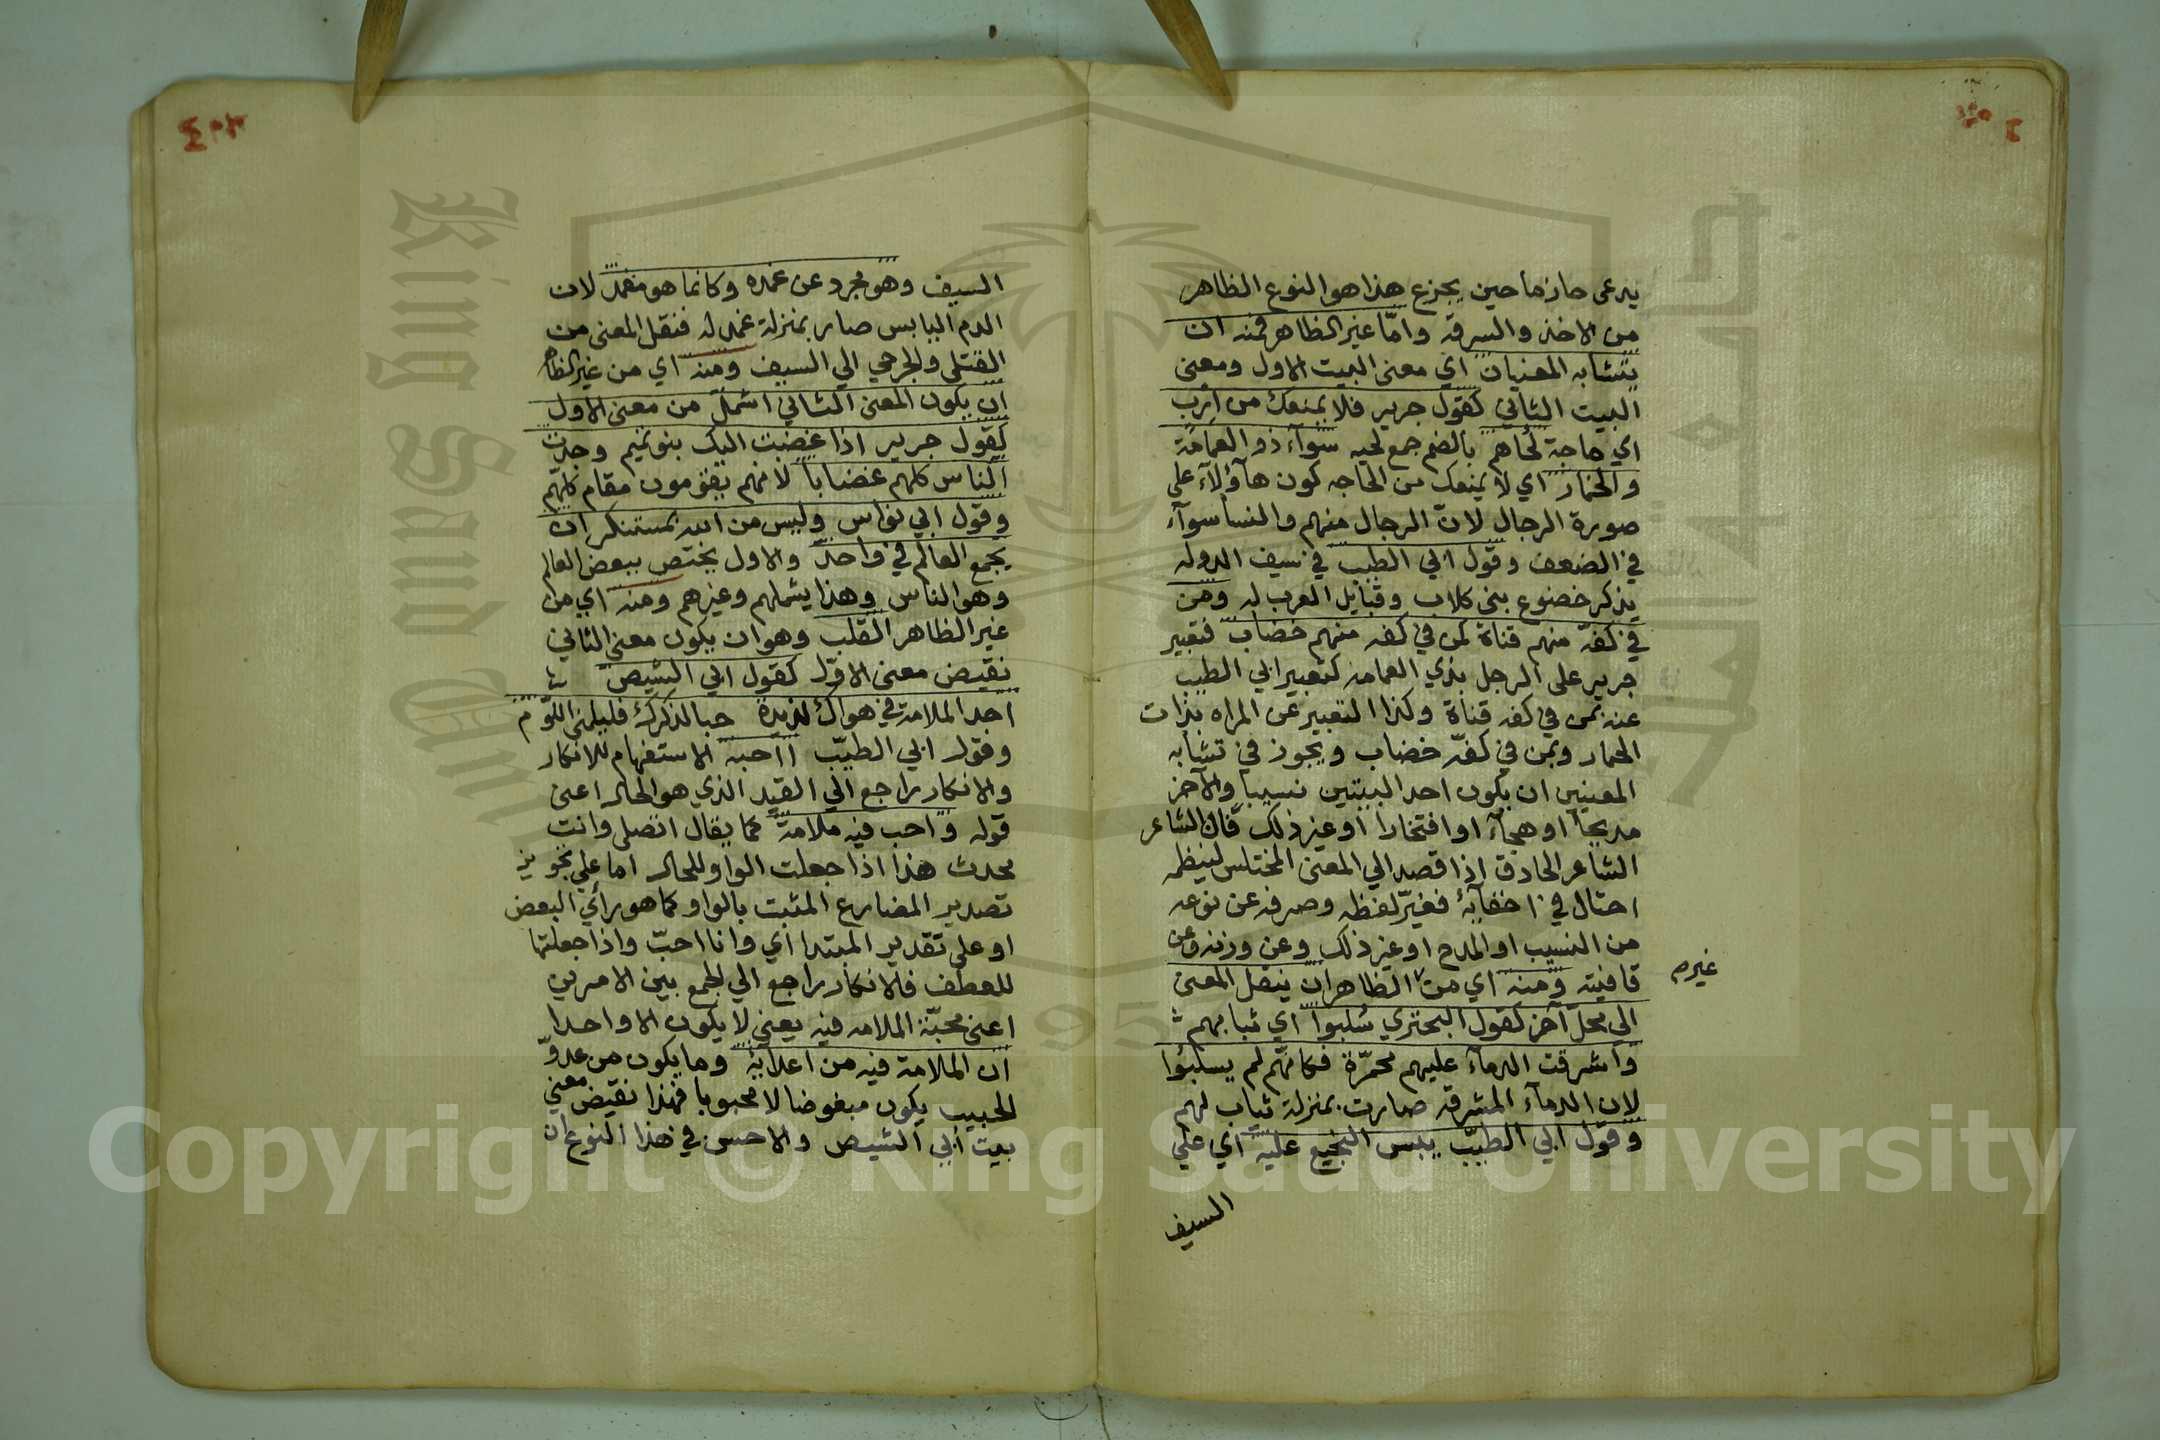 يدعى حازما حين يجزع هذا هو النوع الظاهر
من الاخذ والسرقة واما غير الظاهر فمنه ان
يتشابه المعنيان اي معنى البيت الاول ومعنى
البيت الثاني كقول جرير فلا يمنعك من أرب
اي حاجة لحاهم بالضم جمع لحيه سوآء ذو العمامة
والخمار اي لا يمنعك من الحاجه كون هآؤلآء علي
صورة الرجال لانّ الرجال منهم والنسا سوآء
في الضعف وقول ابي الطيب في سيف الدوله
يذكر خضوع بني كلاب وقبايل العرب له ومن
في كفّه منهم قناة كمن في كفه منهم خضاب فتعبير
جرير على الرجل بذي العمامه كتعبير ابي الطيب
عنه بمن في كفه قناة وكذا التعبير عن المراه بذات
الخمار وبمن في كفّه خضاب ويجوز في تشابه
المعنيين ان يكون احد البيتين نسيبا والآخر
مديحًا او هجآء او افتخارا او غير ذلك فان الشاعر
الشاعر الحاذق اذا قصد الي المعنى المختلس لينظمه
احتال في اخفآئه فغيّر لفظه وصرفه عن نوعه
من النسيب او المدح او غير ذلك وعن وزنه وعن
قافيته ومنه اي من الظاهر ان ينقل المعنى
غير صح
الى محلّ آخر كقول البحتري سُلبوا اي ثيابهم
وأشرقت الدمآء عليهم محمرّة فكانّهم لم يسلبُوا
لان الدمآء المشرقه صارت بمنزلة ثياب لهم
وقول ابي الطيّب يبس النجيع عليه اي علي
السيف
٤٠٣
السيف وهو مجرد عن غمده وكانما هو مغمد لان
الدم اليابس صار بمنزلة غمد له فنقل المعنى من
القتلى والجرحي الي السيف ومنه اي من غير الظاهر
ان يكون المعنى الثاني اشمل من معنى الاول
كقول جرير اذا غضبت اليك بنو تميم وجدت
الناس كلهم غضاباً لانهم يقومون مقام كلهّم
وقول ابي نواس وليس من الله بمستنكر ان
يجمع العالم في واحد والاول يختص ببعض العالم
وهو الناس وهذا يشملهم وغيرهم ومنه اي من
غير الظاهر القلب وهو ان يكون معنى الثاني
نقيض معنى الاوّل كقول ابي الشيص
اجد الملامة في هواك لذيذة حبا لذكرك فليلمني اللوّم
وقول ابي الطيّب أأحبه الاستفهام للانكار
والانكار راجع الي القيد الذي هو الحال اعنى
قوله وَاحب فيه ملامة كما يقال اتصلي وانت
محدث هذا اذا جعلت الواو للحال اما علي تجويز
تصدير المضارع المثبت بالواو كما هو رأي البعض
او على تقدير المبتدا اي وانا احبّ واذا جعلتها
للعطف فالانكار راجع الي الجمع بين الامرين
اعنى محبّة الملامه فيه يعني لا يكون الا واحدا
ان الملامة فيه من اعدايهِ وما يكون من عدوّ
الحبيب يكون مبغوضا لا محبوبا فهذا نقيض معني
بيت أبي الشيص والاحسن في هذا النوع ان